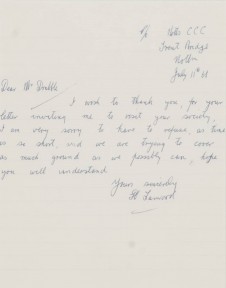 c/o Notts C.C.C
Trent Bridge
Nottm
July 11th
Dear Mr
I wish to thank you, for your
letter inviting me to visit your society,
I am very sorry to have to refuse, as time
is so short, and we are trying to cover
as much ground as we possibly can, hope
you will understand
Yours sincerely
H Larwood